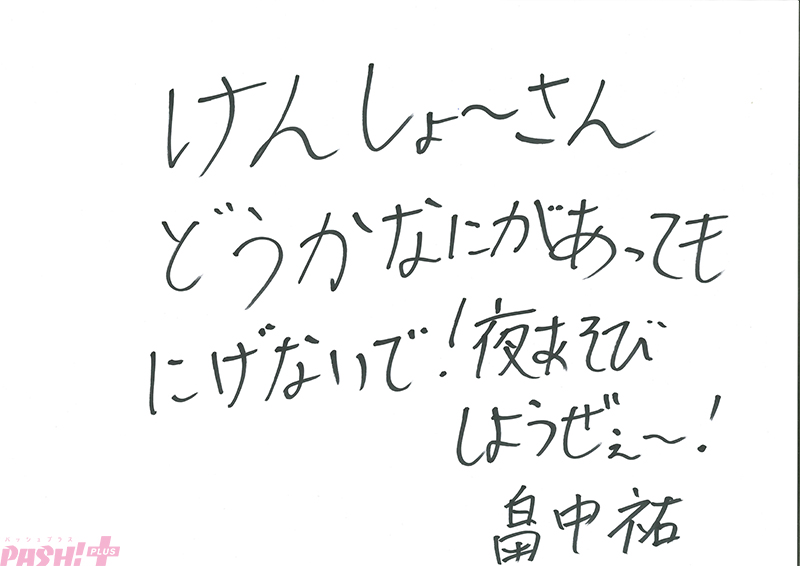 けんしょ〜さん
どうかなにがあっても
にげないで！夜あそび
しようぜぇ〜！
畠中祐
パッシュプラス
PASH!+ PLUS